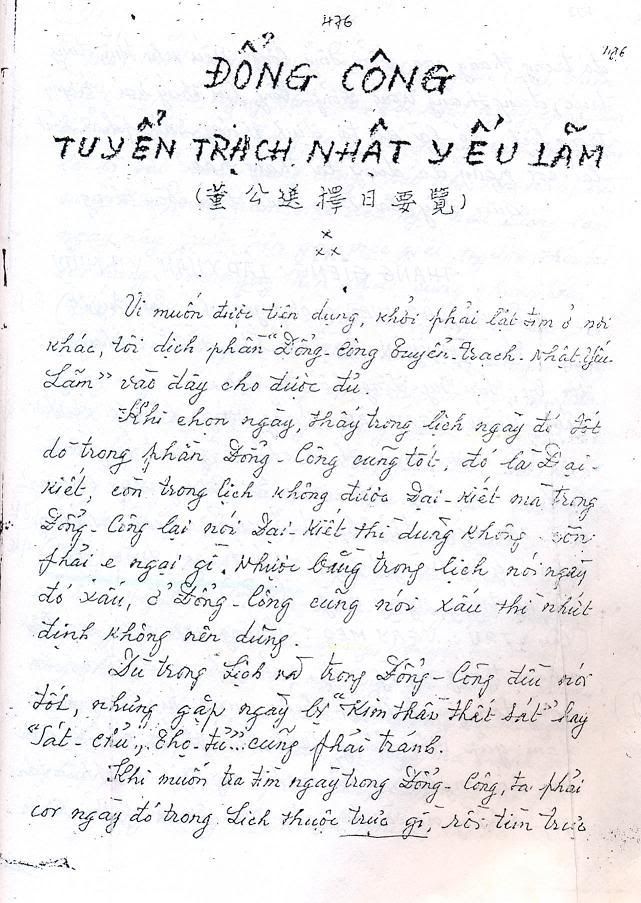 476
476
ĐỔNG CÔNG
TUYỂN TRẠCH NHẬT YẾU LÃM
(董公選擇日要覽)
Vì muốn được tiện dụng, khỏi phải lật tìm ở nơi
khác, tôi dịch phần "Đổng-Công Tuyển-Trạch-Nhật-Yếu-
Lãm" vào đây cho được đủ.
Khi chọn ngày, thấy trong lịch ngày đó tốt
dò trong phần Đổng-Công cũng tốt, đó là Đại-
kiết, còn trong lịch không được Đại-kiết mà trong
Đổng-Công lại nói Đại-kiết thì dùng không còn
phải e ngại gì. Nhược bằng trong lịch nói ngày
đó xấu, ở Đổng-Công cũng nói xấu thì nhứt
định không nên dùng.
Dù trong Lịch và trong Đổng-Công đều nói
tốt, nhưng gặp ngày bị "Kim thần thất sát" hay
"Sát-chủ", Thọ-tử"... cũng phải tránh.
Khi muốn tra tìm ngày trong Đổng-Công, ta phải
coi ngày đó trong Lịch thuộc trực gì, rồi tìm trực